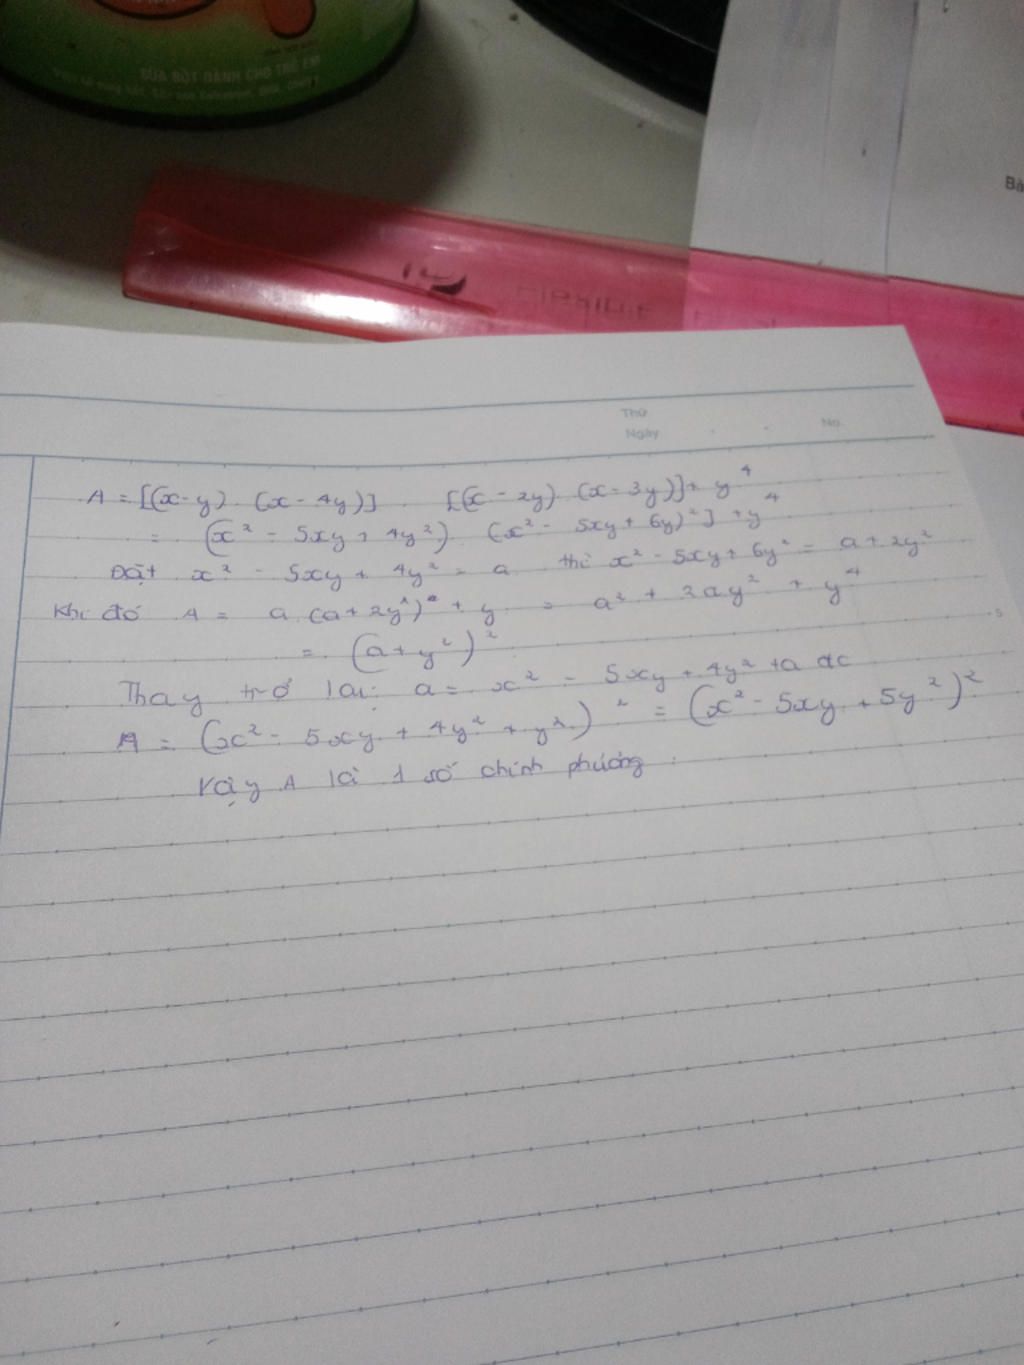 SỮA BỘT DÀNH CHO TRẺ EM
Bà
FLEXIBLE
Thứ
Ngày
No.
A = [(x-y). (x-4y)] . [(x-2y) (x-3y)] + y⁴
= (x² - 5xy + 4y²) (x² - 5xy + 6y)²] + y⁴
Đặt x² - 5xy + 4y² = a thì x² - 5xy + 6y² = a + 2y²
Khi đó A = a (a + 2y²) + y = a² + 2ay² + y⁴
= (a + y²)²
Thay trở lại: a = x² - 5xy + 4y² ta đc
A = (x² - 5xy + 4y² + y²)² = (x² - 5xy + 5y²)²
Vậy A là 1 số chính phương.